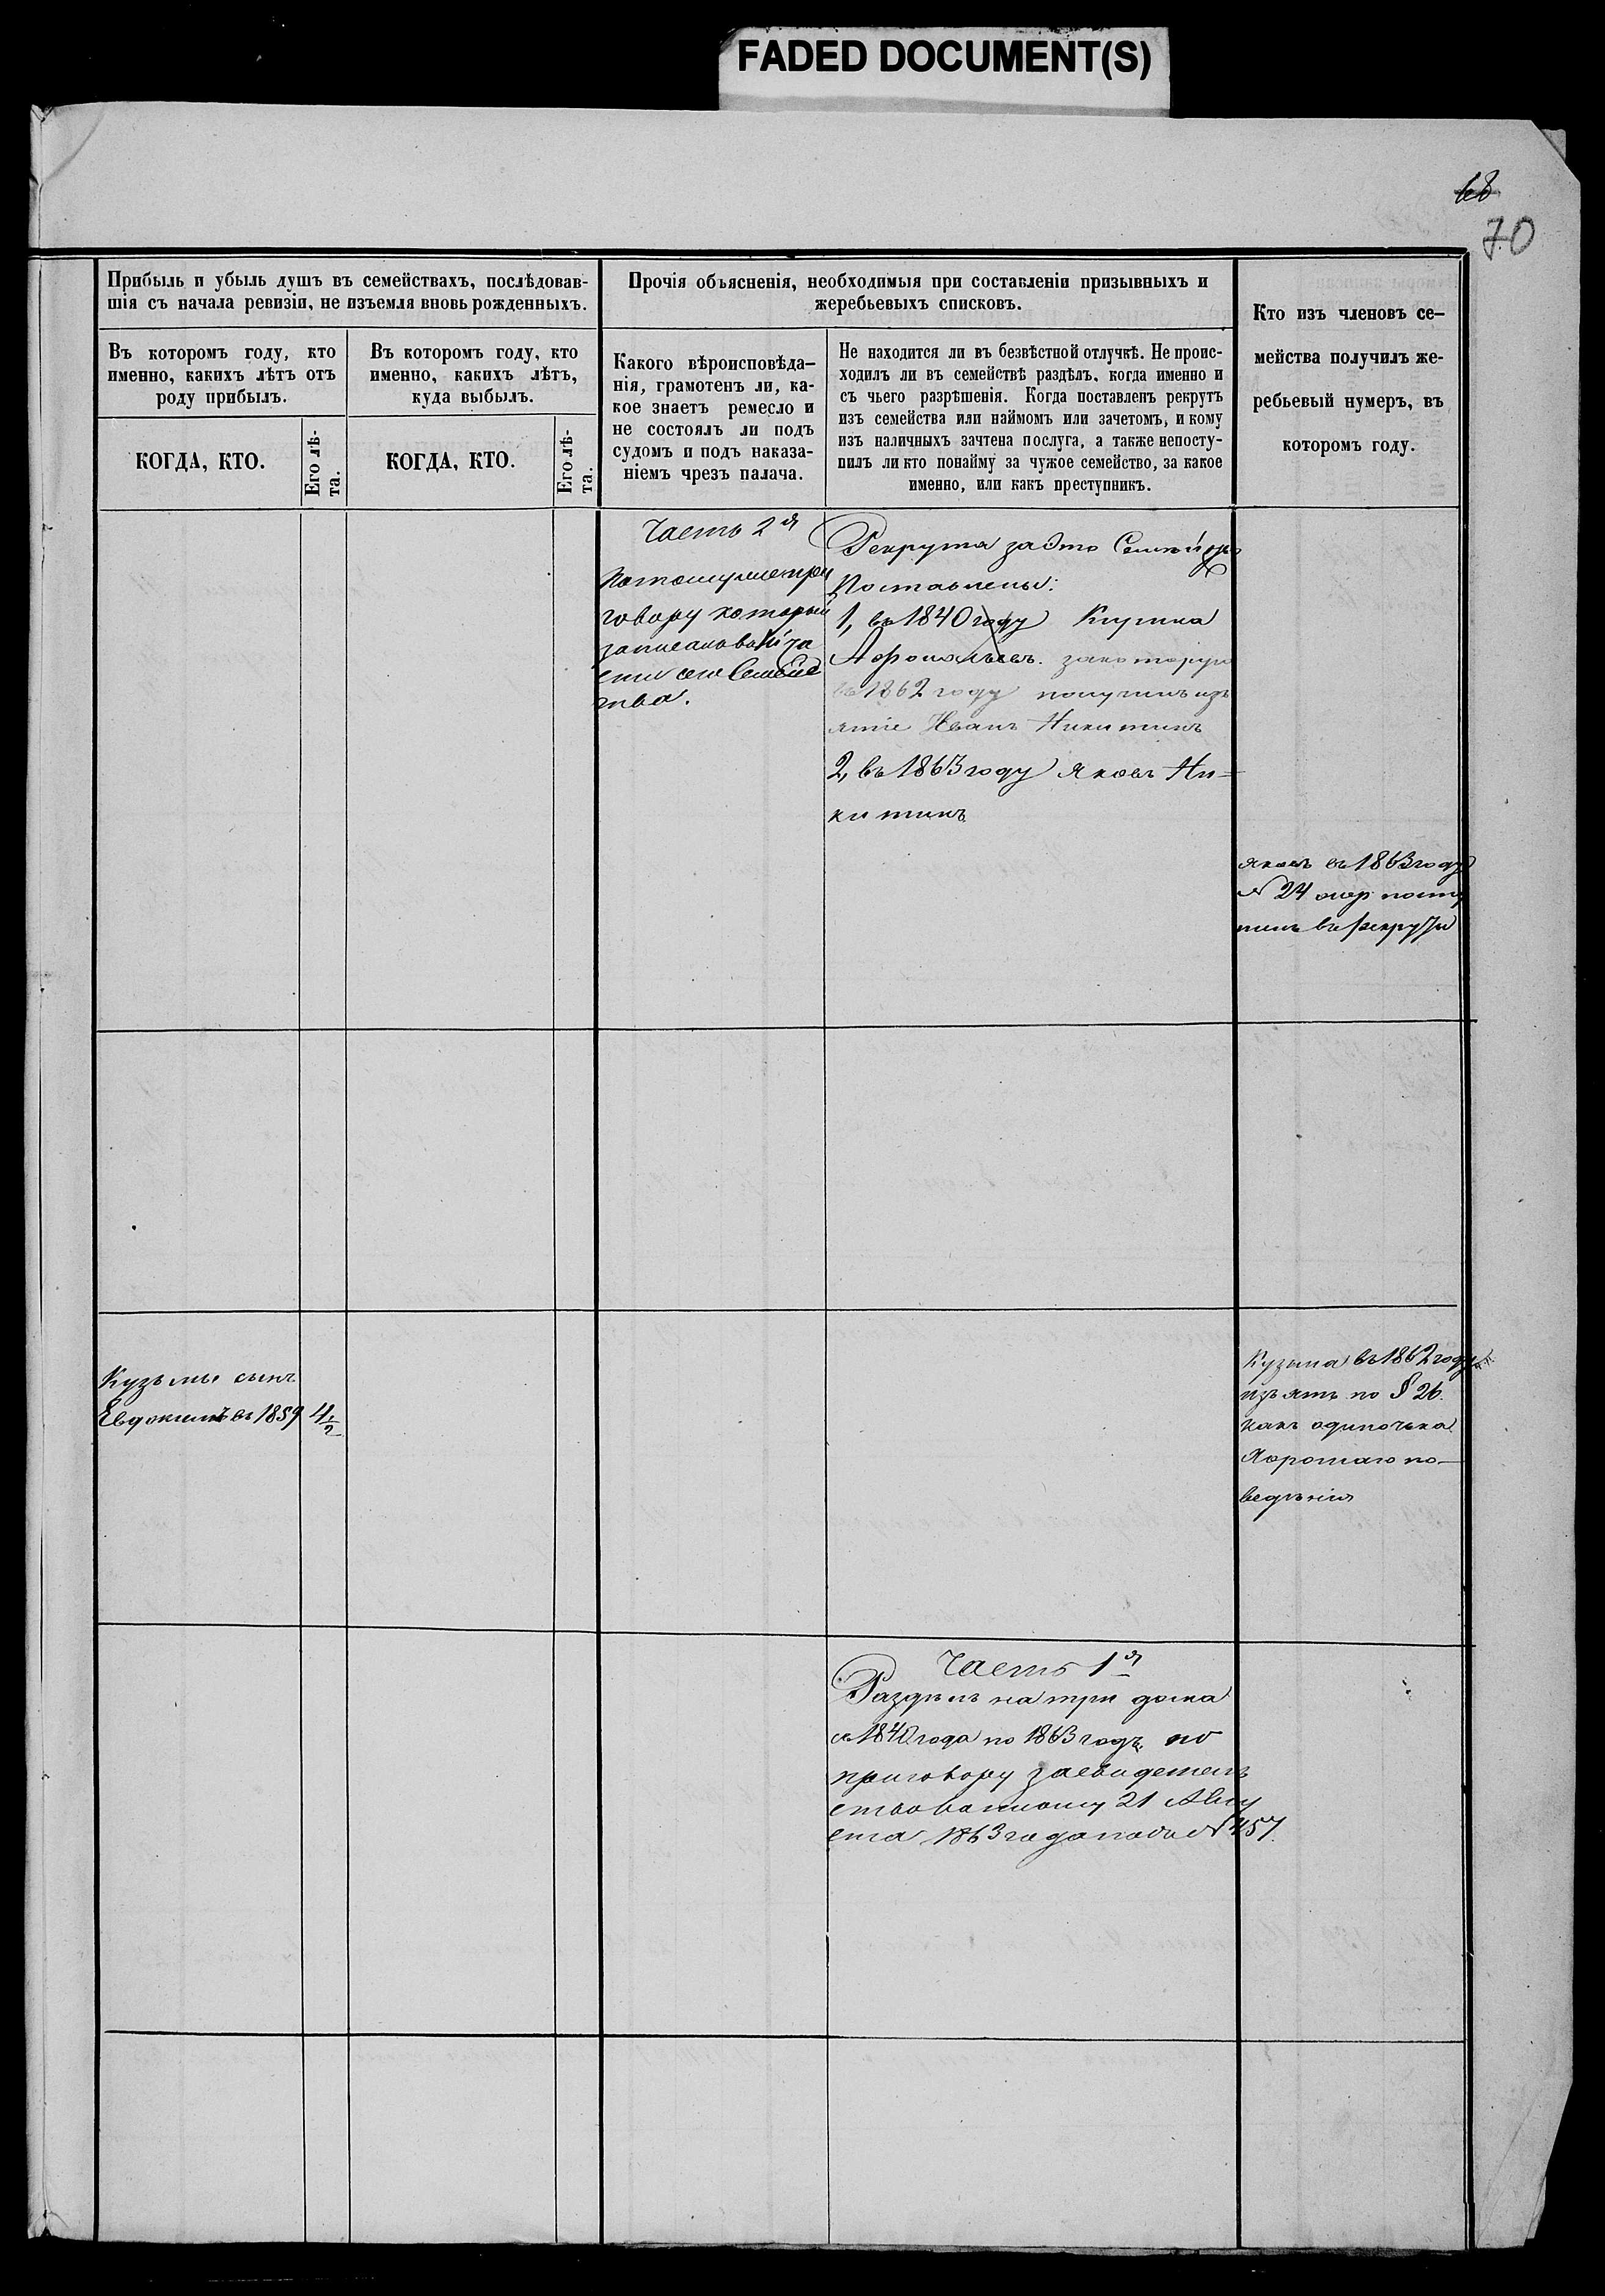 FADED DOCUMENT(S)
68
70
Прибыль и убыль душъ въ семействахъ, послѣдовав-
шія съ начала ревизіи, не изъемля вновь рожденныхъ.
Прочія объясненія, необходимыя при составленіи призывныхъ и
жеребьевыхъ списковъ.
Кто изъ членовъ се-
мейства получилъ же-
ребьевый нумеръ, въ
которомъ году.
Въ которомъ году, кто
именно, какихъ лѣтъ отъ
роду прибылъ.
Въ которомъ году, кто
именно, какихъ лѣтъ,
куда выбылъ.
Какого вѣроисповѣда-
нія, грамотенъ ли, ка-
кое знаетъ ремесло и
не состоялъ ли подъ
судомъ и подъ наказа-
ніемъ чрезъ палача.
Не находится ли въ безвѣстной отлучкѣ. Не проис-
ходилъ ли въ семействѣ раздѣлъ, когда именно и
съ чьего разрѣшенія. Когда поставленъ рекрутъ
изъ семейства или наймомъ или зачетомъ, и кому
изъ наличныхъ зачтена послуга, а также непосту-
пилъ ли кто понайму за чужое семейство, за какое
именно, или какъ преступникъ.
КОГДА, КТО.
Его лѣ-
та.
КОГДА, КТО.
Его лѣ-
та.
Часть 2я
потомуже при
говору который
записанъ въ
сего Семейс
тва.
Рекрута за это
Поставлены:
1, въ 1840 году Кирика
закоторую
въ 1862 году получилъ изъ
ятіе Иванъ Никитинъ
2, въ 1863 году Яковъ Ни=
китинъ
Яковъ въ 1863 году
№ 24 жер посту
пилъ въ рекруты
Кузьмы сынъ
Евдокимъ въ 1859 4½
Кузьма въ 1862 году
изъятъ по § 26.
какъ одиночька
Хорошаго по-
веденія
Часть 1я
Раздѣлъ на три дома
съ 1840 года по 1863 годъ, по
приговору засвидетель
ствованному 21 Авгу
ста 1863 года подъ № 457.